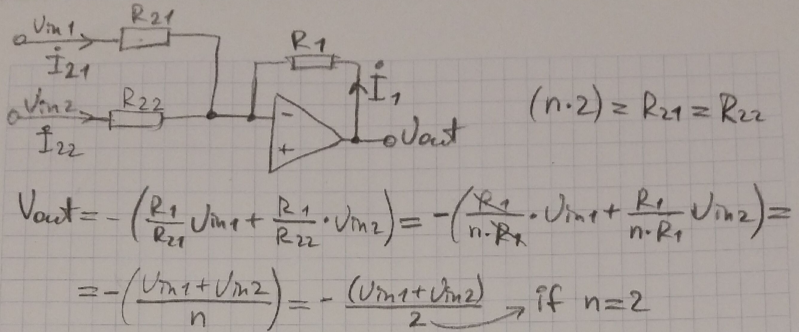 Uin1 R21
I21 R1
Uin2 R22 I1
I22 - + Uout
(n·2) = R21 = R22
Uout = -(R1/R21 Uin1 + R1/R22 · Uin2) = -(R1/n·R1 · Uin1 + R1/n·R1 Uin2) =
= -(Uin1 + Uin2/n) = - (Uin1 + Uin2)/2 → if n=2